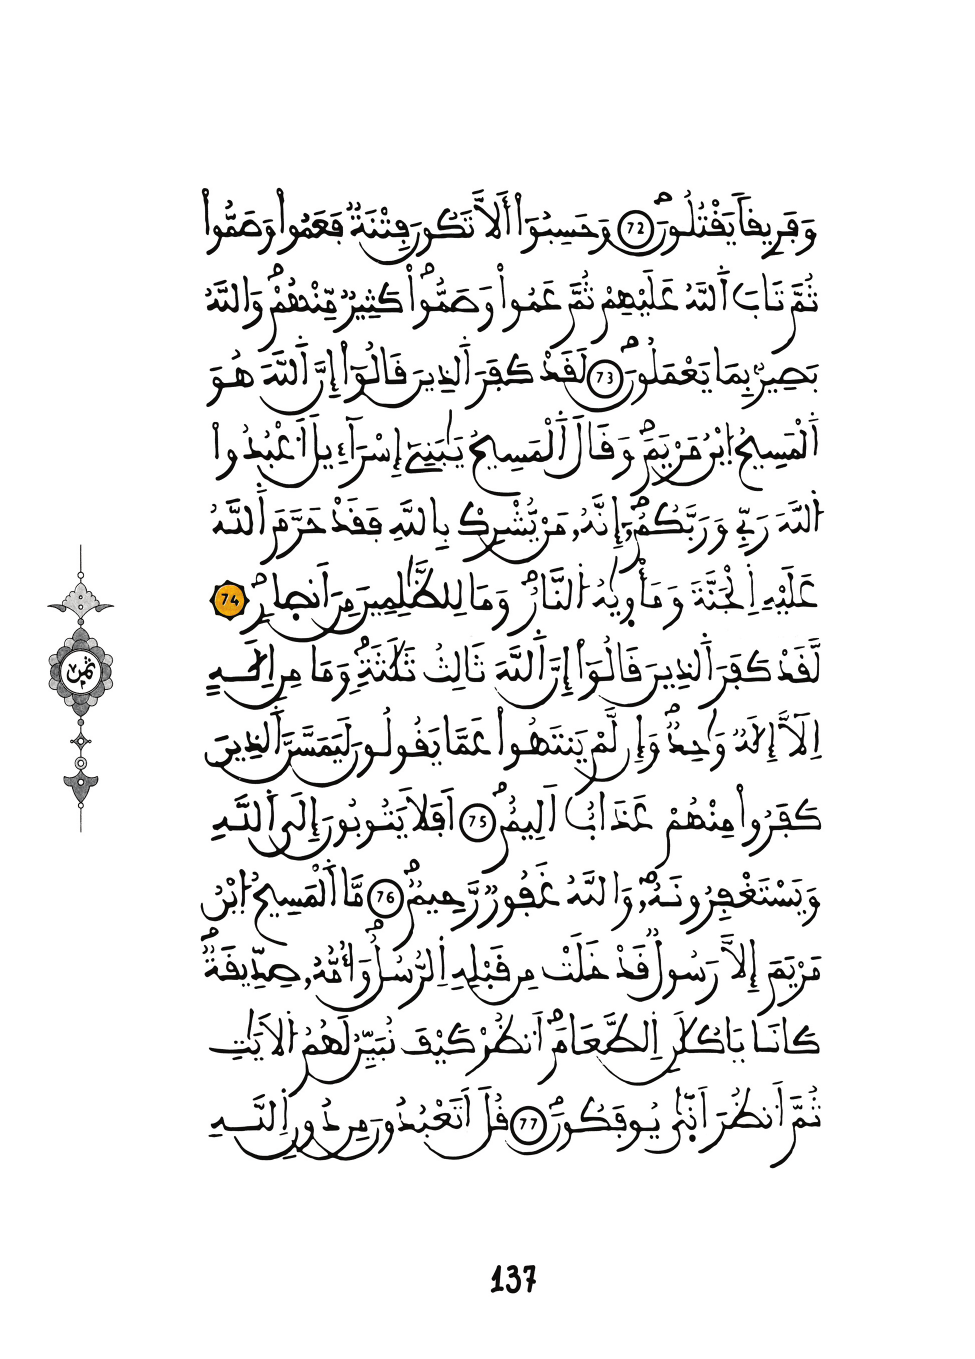 وَفَرِيقاٗ يَقْتُلُونَۖ 72 وَحَسِبُوٓاْ أَلَّا تَكُونَ فِتْنَةٞ فَعَمُواْ وَصَمُّواْ
ثُمَّ تَابَ اَ۬للَّهُ عَلَيْهِمْ ثُمَّ عَمُواْ وَصَمُّواْ كَثِيرٞ مِّنْهُمْۖ وَاللَّهُ
بَصِيرُۢ بِمَا يَعْمَلُونَۖ 73 لَقَدْ كَفَرَ اَ۬لذِينَ قَالُوٓاْ إِنَّ اَ۬للَّهَ هُوَ
اَ۬لْمَسِيحُ اُ۪بْنُ مَرْيَمَۖ وَقَالَ اَ۬لْمَسِيحُ يَٰبَنِےٓ إِسْرَآءِيلَ اَ۟عْبُدُواْ
اُ۬للَّهَ رَبِّے وَرَبَّكُمُۥٓۖ إِنَّهُۥ مَنْ يُّشْرِكْ بِاللَّهِ فَقَدْ حَرَّمَ اَ۬للَّهُ
عَلَيْهِ اِ۬لْجَنَّةَ وَمَأْو۪يٰهُ اُ۬لنَّارُۖ وَمَا لِلظَّٰلِمِينَ مِنَ اَنص۪ارٖۖ 74
لَّقَدْ كَفَرَ اَ۬لذِينَ قَالُوٓاْ إِنَّ اَ۬للَّهَ ثَالِثُ ثَلَٰثَةٖۖ وَمَا مِنِ اِلَٰهٍ
اِلَّآ إِلَٰهٞ وَٰحِدٞۖ وَإِن لَّمْ يَنتَهُواْ عَمَّا يَقُولُونَ لَيَمَسَّنَّ اَ۬لذِينَ
كَفَرُواْ مِنْهُمْ عَذَابٌ اَلِيمٌۖ 75 اَفَلَا يَتُوبُونَ إِلَي اَ۬للَّهِ
وَيَسْتَغْفِرُونَهُۥۖ وَاللَّهُ غَفُورٞ رَّحِيمٞۖ 76 مَّا اَ۬لْمَسِيحُ اُ۪بْنُ
مَرْيَمَ إِلَّا رَسُولٞ قَدْ خَلَتْ مِن قَبْلِهِ اِ۬لرُّسُلُۖ وَأُمُّهُۥ صِدِّيقَةٞۖ
كَانَا يَاكُلَٰنِ اِ۬لطَّعَامَۖ اَ۟نظُرْ كَيْفَ نُبَيِّنُ لَهُمُ اُ۬لَايَٰتِ
ثُمَّ اَ۟نظُرَ اَنّ۪يٰ يُوفَكُونَۖ 77 قُلَ اَتَعْبُدُونَ مِن دُونِ اِ۬للَّهِ
ثمن
137